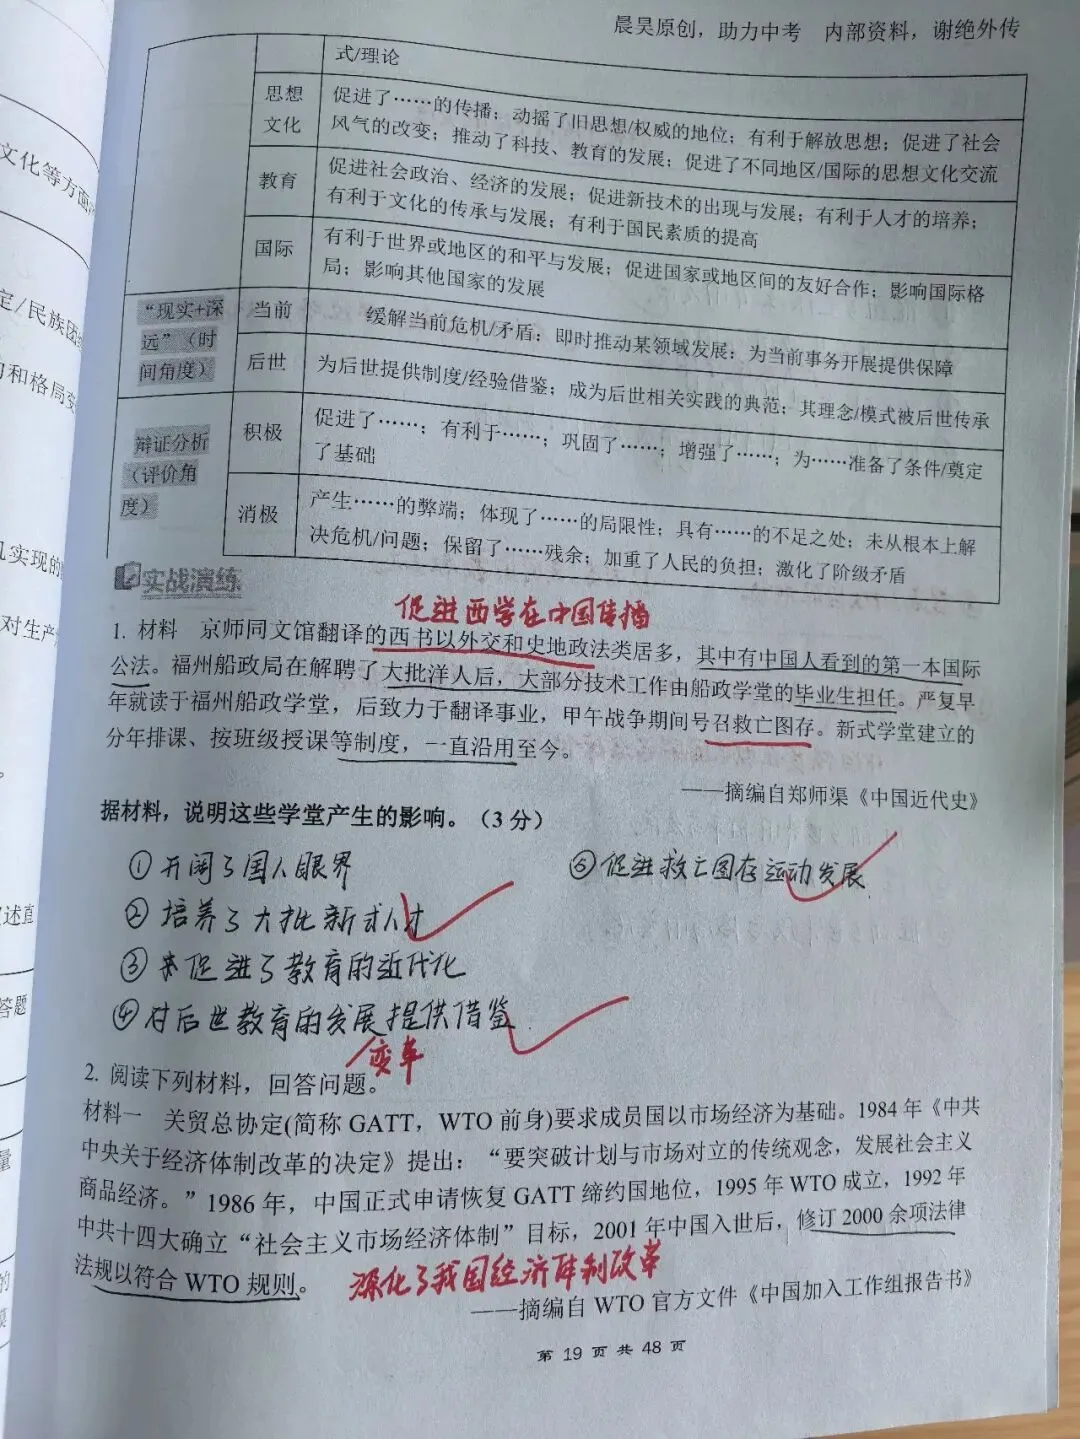 晨昊原创，助力中考 内部资料，谢绝外传
式/理论
思想
文化
促进了……的传播；动摇了旧思想/权威的地位；有利于解放思想；促进了社会
风气的改变；推动了科技、教育的发展；促进了不同地区/国际的思想文化交流
教育
促进社会政治、经济的发展；促进新技术的出现与发展；有利于人才的培养；
有利于文化的传承与发展；有利于国民素质的提高
国际
有利于世界或地区的和平与发展；促进国家或地区间的友好合作；影响国际格
局；影响其他国家的发展
“现实+深
远”（时
间角度）
当前
缓解当前危机/矛盾；即时推动某领域发展；为当前事务开展提供保障
后世
为后世提供制度/经验借鉴；成为后世相关实践的典范；其理念/模式被后世传承
辩证分析
（评价角
度）
积极
促进了……；有利于……；巩固了……；增强了……；为……准备了条件/奠定
了基础
消极
产生……的弊端；体现了……的局限性；具有……的不足之处；未从根本上解
决危机/问题；保留了……残余；加重了人民的负担；激化了阶级矛盾
实战演练
促进西学在中国传播
1. 材料 京师同文馆翻译的西书以外交和史地政法类居多，其中有中国人看到的第一本国际
公法。福州船政局在解聘了大批洋人后，大部分技术工作由船政学堂的毕业生担任。严复早
年就读于福州船政学堂，后致力于翻译事业，甲午战争期间号召救亡图存。新式学堂建立的
分年排课、按班级授课等制度，一直沿用至今。
——摘编自郑师渠《中国近代史》
据材料，说明这些学堂产生的影响。（3 分）
① 开阔了国人眼界
② 培养了大批新式人才
③ 促进了教育的近代化
④ 对后世教育的发展提供借鉴
⑤ 促进救亡图存运动发展
变革
2. 阅读下列材料，回答问题。
材料一 关贸总协定(简称 GATT，WTO 前身)要求成员国以市场经济为基础。1984 年《中共
中央关于经济体制改革的决定》提出：“要突破计划与市场对立的传统观念，发展社会主义
商品经济。”1986 年，中国正式申请恢复 GATT 缔约国地位，1995 年 WTO 成立，1992 年
中共十四大确立“社会主义市场经济体制”目标，2001 年中国入世后，修订 2000 余项法律
法规以符合 WTO 规则。
深化了我国经济体制改革
——摘编自 WTO 官方文件《中国加入工作组报告书》
第 19 页 共 48 页
文化等方面
定/民族团结
和格局
实现的
对生产
述直
答题
量
的